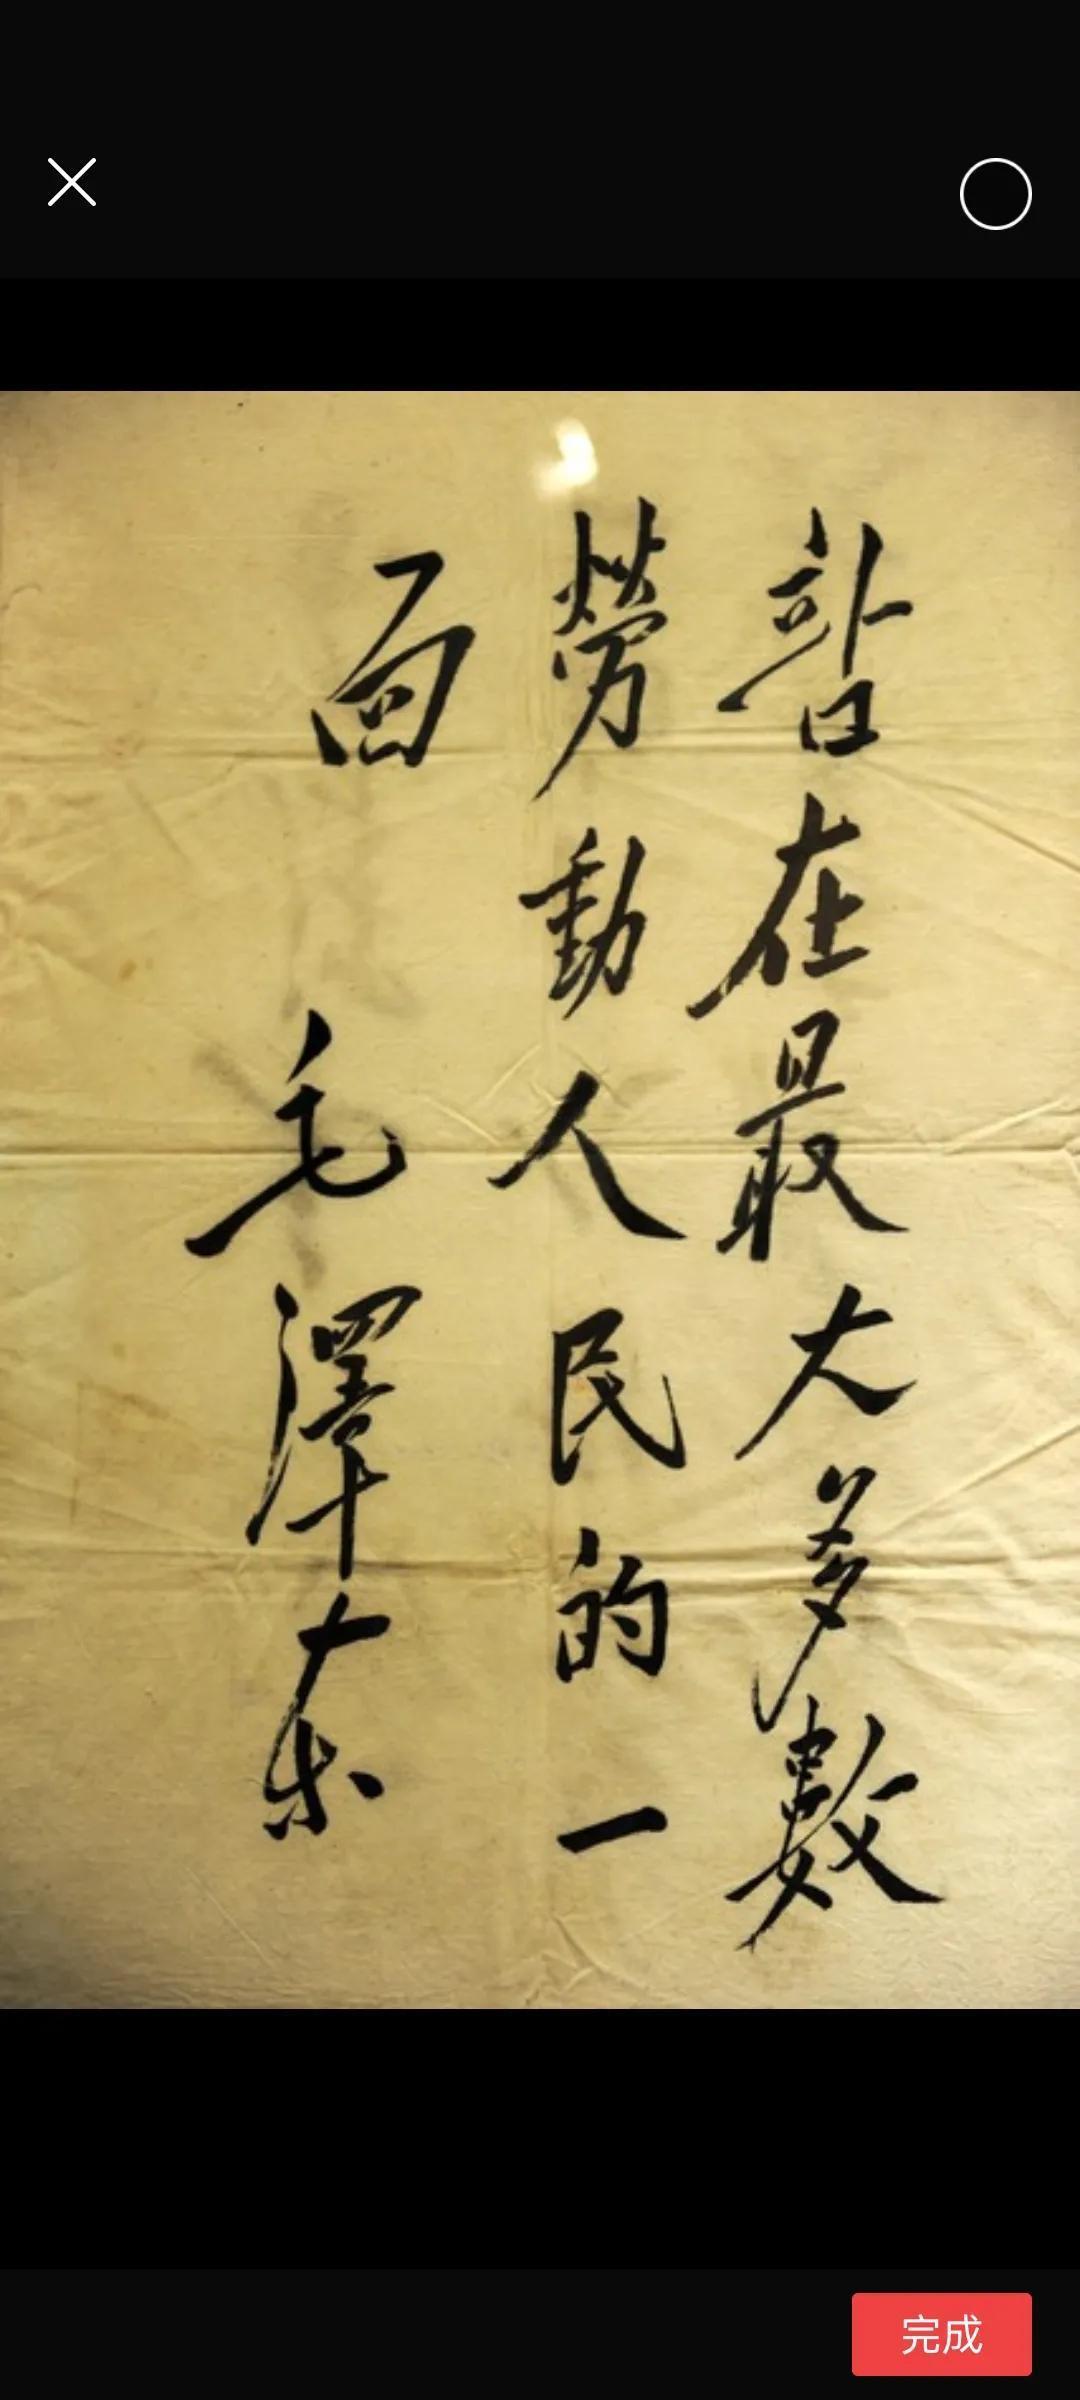 站在最大多數
勞動人民的一
面
毛澤东
完成